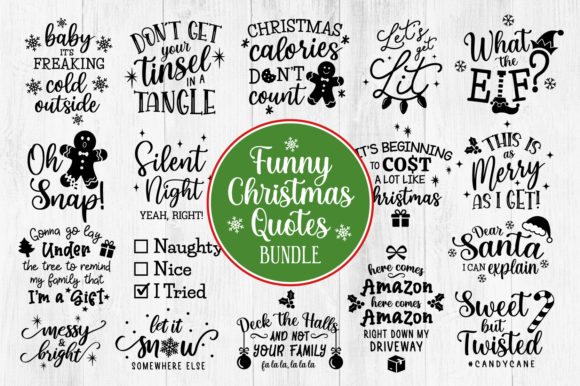 baby
IT'S
FREAKING
cold
outside
DON'T GET
your
tinsel
IN A
TANGLE
CHRISTMAS
calories
DON'T
count
Let's
get
Lit
What
THE
ELF?
Oh
Snap!
Silent
Night
YEAH, RIGHT!
Funny
Christmas
Quotes
BUNDLE
IT'S BEGINNING
TO CO$T
A LOT LIKE
Christmas
THIS IS
as
Merry
AS I GET!
Gonna go lay
Under
the tree to remind
my family that
I'm a Gift
Naughty
Nice
I Tried
here comes
Amazon
here comes
Amazon
RIGHT DOWN MY
DRIVEWAY
Dear
Santa
I CAN EXPLAIN
messy
&
bright
let it
snow
SOMEWHERE ELSE
Deck the Halls
AND NOT
YOUR FAMILY
fa la la, la la la
Sweet
but
Twisted
#CANDYCANE